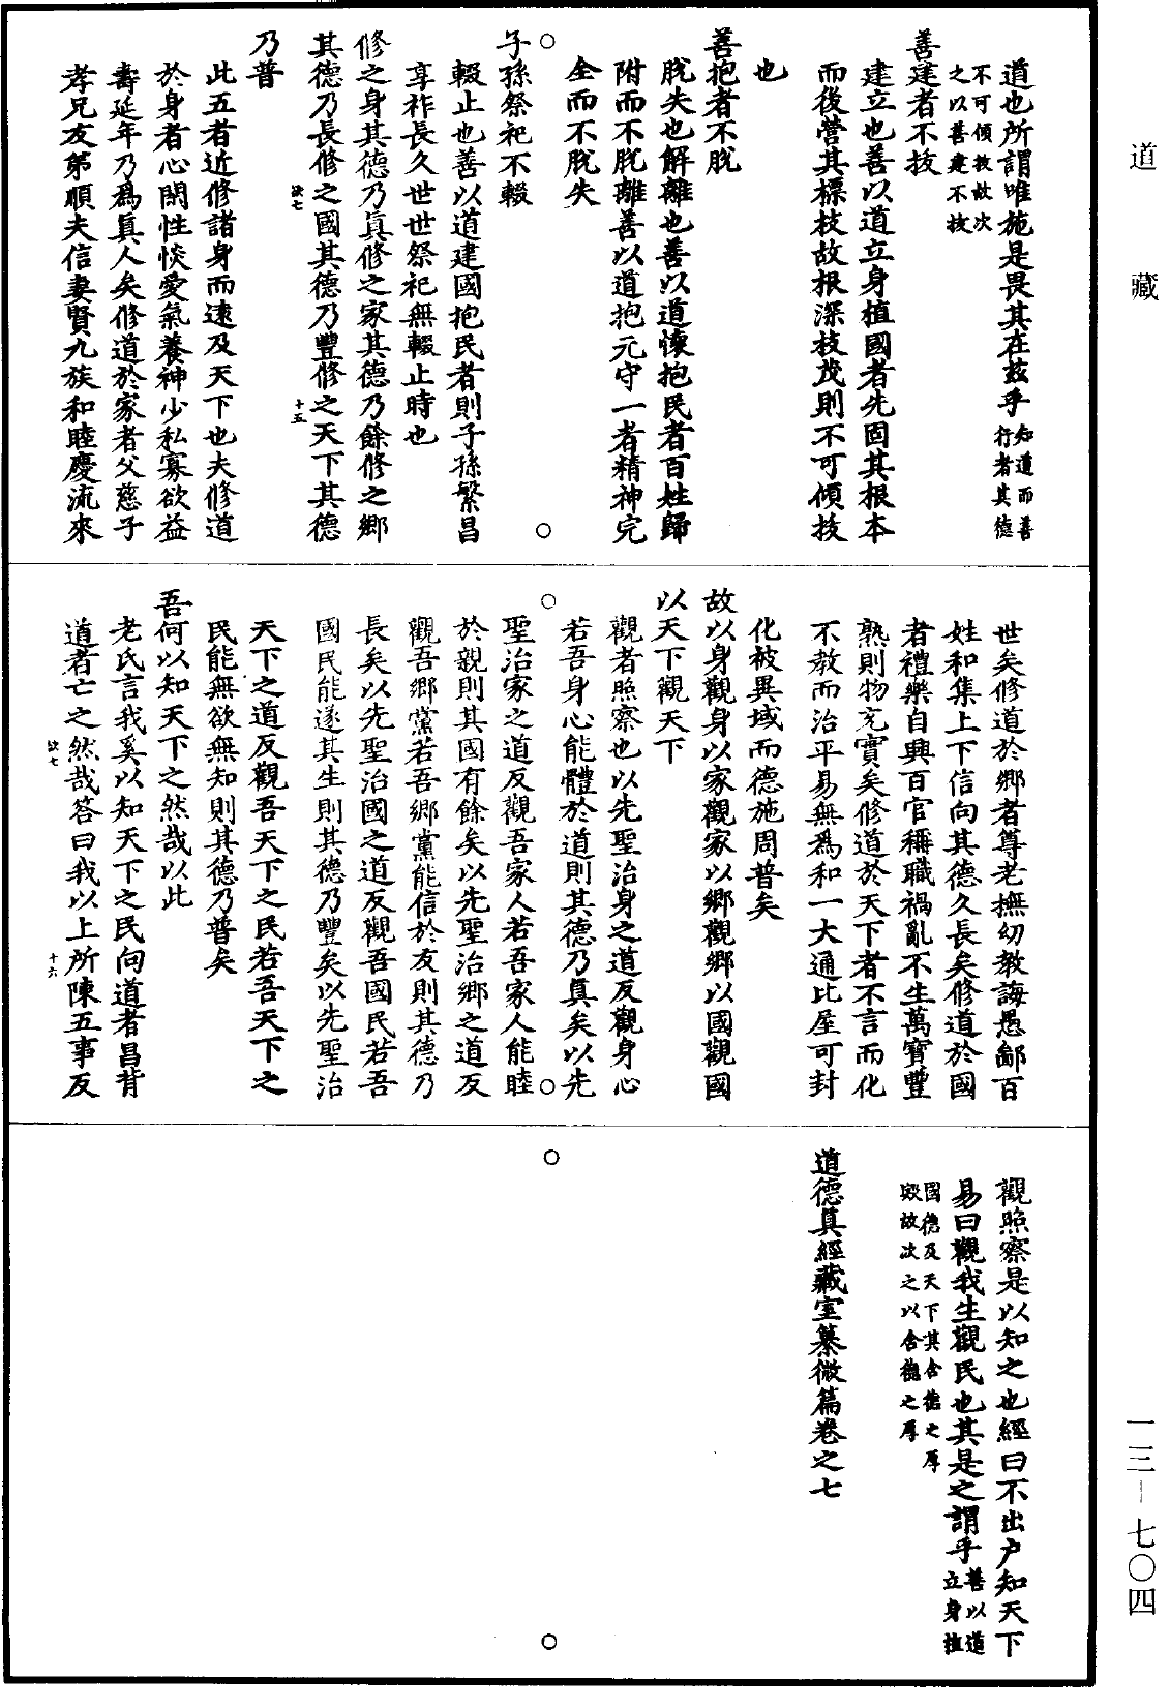 道藏
道也所謂唯施是畏其在玆乎知道而善
行者其德
不可傾拔故次
之以善建不拔
善建者不拔
建立也善以道立身植國者先固其根本
而後營其標枝故根深枝茂則不可傾拔
也
善抱者不脫
脫失也解離也善以道懷抱民者百姓歸
附而不脫離善以道抱元守一者精神完
全而不脫失
子孫祭祀不輟
輟止也善以道建國抱民者則子孫繁昌
享祚長久世世祭祀無輟止時也
修之身其德乃眞修之家其德乃餘修之鄉
其德乃長修之國其德乃豐修之天下其德
欲七 十五
乃普
此五者近修諸身而遠及天下也夫修道
於身者心閑性惔愛氣養神少私寡欲益
壽延年乃爲眞人矣修道於家者父慈子
孝兄友弟順夫信妻賢九族和睦慶流來
世矣修道於鄉者尊老撫幼教誨愚鄙百
姓和集上下信向其德久長矣修道於國
者禮樂自興百官稱職禍亂不生萬寶豐
熟則物充實矣修道於天下者不言而化
不教而治平易無爲和一大通比屋可封
化被異域而德施周普矣
故以身觀身以家觀家以鄉觀鄉以國觀國
以天下觀天下
觀者照察也以先聖治身之道反觀身心
若吾身心能體於道則其德乃眞矣以先
聖治家之道反觀吾家人若吾家人能睦
於親則其國有餘矣以先聖治鄉之道反
觀吾鄉黨若吾鄉黨能信於友則其德乃
長矣以先聖治國之道反觀吾國民若吾
國民能遂其生則其德乃豐矣以先聖治
天下之道反觀吾天下之民若吾天下之
民能無欲無知則其德乃普矣
吾何以知天下之然哉以此
老氏言我奚以知天下之民向道者昌背
道者亡之然哉答曰我以上所陳五事反
欲七 十六
觀照察是以知之也經曰不出户知天下
易曰觀我生觀民也其是之謂乎善以道
立身植
國德及天下其含德之厚
毀故次之以含德之厚
道德眞經藏室纂微篇卷之七
一三—七〇四